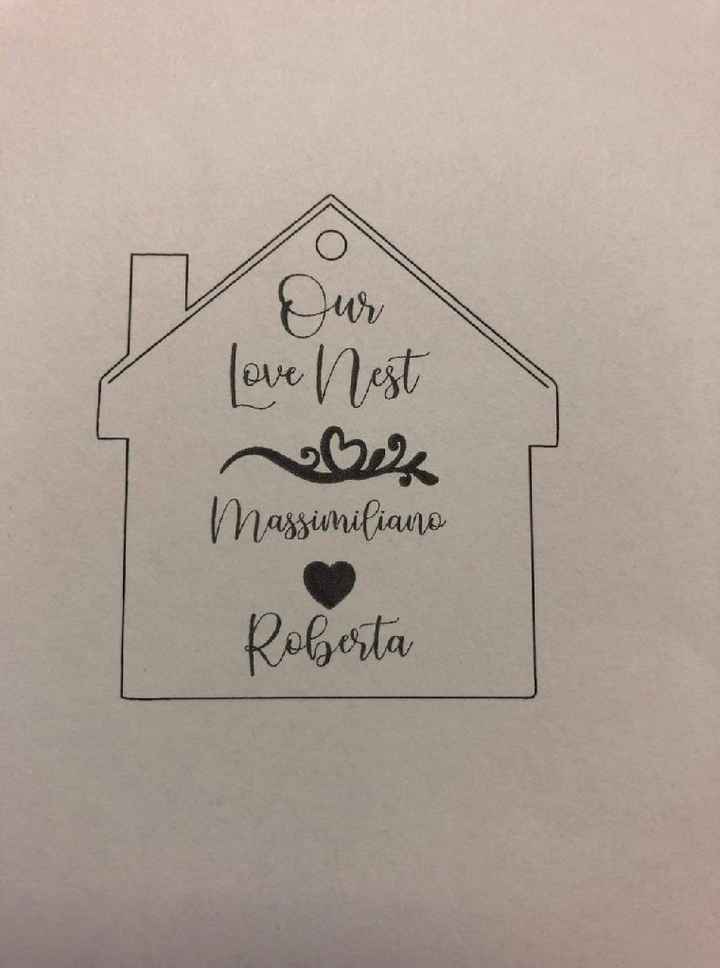 Our
Love Nest
Massimiliano
Roberta